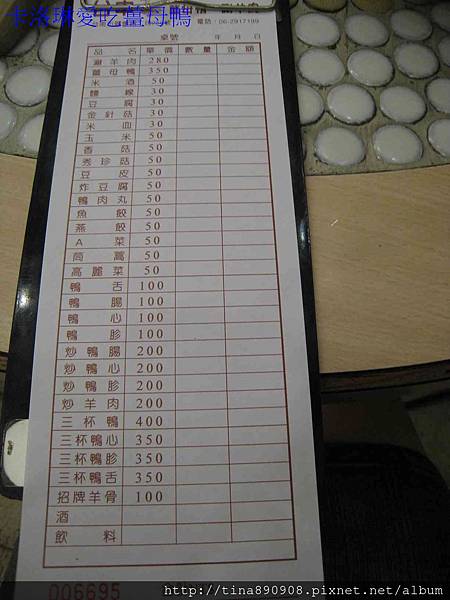 卡洛琳愛吃薑母鴨
電話：06-2917199
桌號 年 月 日
品名 單價 數量 金額
羊肉 280
薑母鴨 350
米酒 50
麵線 30
豆腐 30
金針菇 30
米血 30
玉米 50
香菇 50
秀珍菇 50
豆皮 50
炸豆腐 50
鴨肉丸 50
魚餃 50
燕餃 50
A菜 50
茼蒿 50
高麗菜 50
鴨舌 100
鴨腸 100
鴨心 100
鴨胗 100
炒鴨腸 200
炒鴨心 200
炒鴨胗 200
炒羊肉 200
三杯鴨 400
三杯鴨心 350
三杯鴨胗 350
三杯鴨舌 350
招牌羊骨 100
酒
飲料
006695
http://tina890908.pixnet.net/album